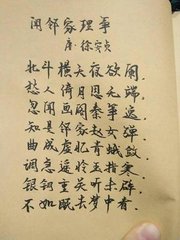 闻邻家理筝
唐·徐安贞
北斗横天夜欲阑，
愁人倚月思无端。
忽闻画阁秦筝逸，
知是邻家赵女弹。
曲成虚忆青蛾敛，
调急遥怜玉指寒。
银锁重关听未辟，
不如眠去梦中看。